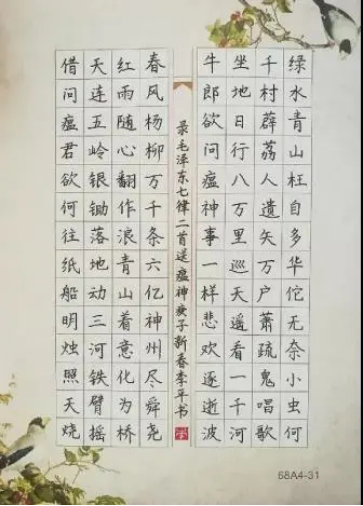 绿水青山枉自多华佗无奈小虫何
千村薜荔人遗矢万户萧疏鬼唱歌
坐地日行八万里巡天遥看一千河
牛郎欲问瘟神事一样悲欢逐逝波
录毛泽东七律二首送瘟神庚子新春李平书
春风杨柳万千条六亿神州尽舜尧
红雨随心翻作浪青山着意化为桥
天连五岭银锄落地动三河铁臂摇
借问瘟君欲何往纸船明烛照天烧
68A4-31